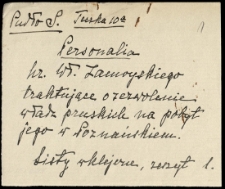 Pudło S. Teczka 10a
Personalia
hr. Wł. Zamoyskiego
traktujące o zezwolenie
władz pruskich na pobyt
jego w Poznańskiem.
Listy wklejone, zeszyt 1.